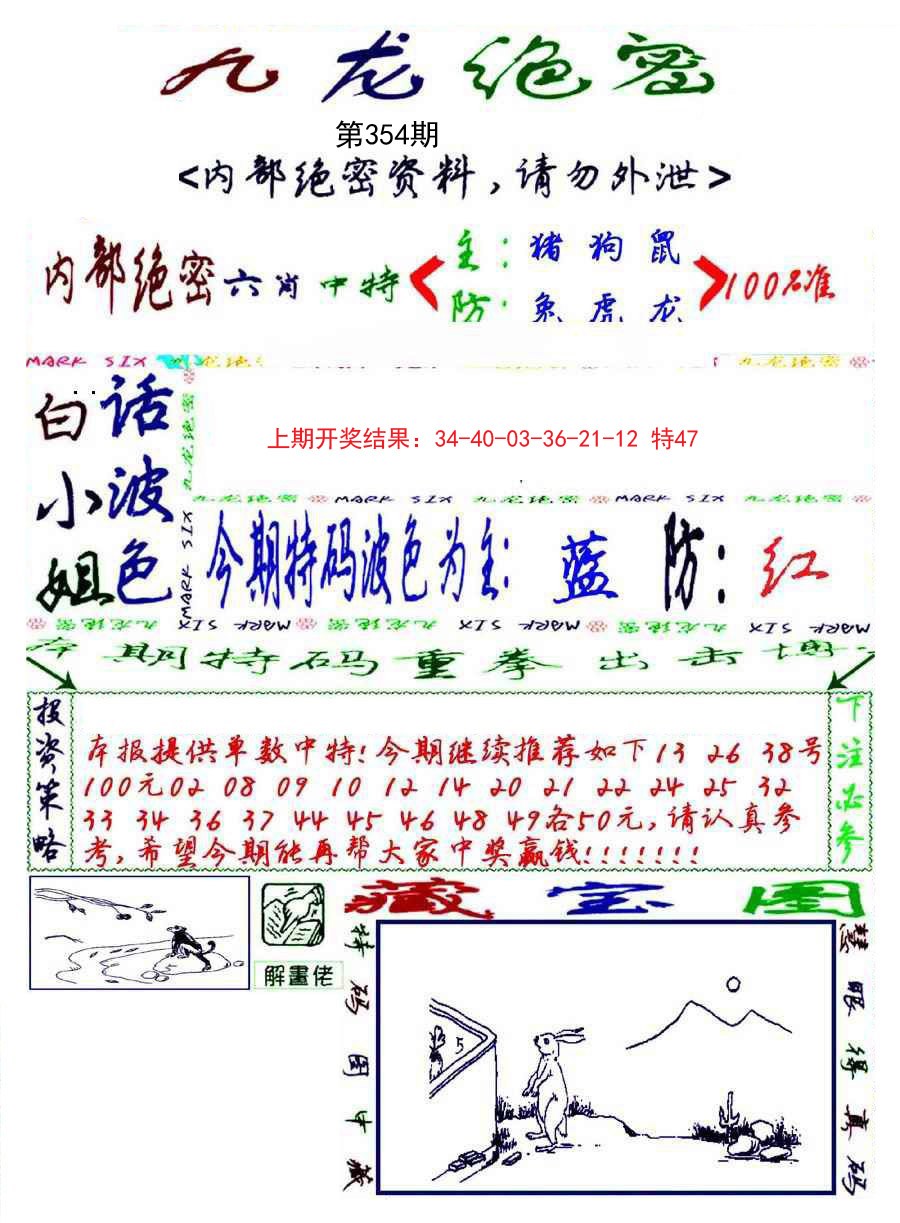 九龙绝密
第354期
<内部绝密资料,请勿外泄>
内部绝密六肖中特
主:猪狗鼠
防:兔虎龙
100%准
MARK SIX 九龙绝密
九龙绝密
白话波色
小姐
九龙绝密
MARK SIX
上期开奖结果: 34-40-03-36-21-12 特47
九龙绝密 MARK SIX 九龙绝密 MARK SIX 九龙绝密
今期特码波色为主: 蓝 防: 红
MARK SIX 九龙绝密 MARK SIX 九龙绝密 MARK SIX 九龙绝密
本期特码重拳出击
投资策略
本报提供单数中特!今期继续推荐如下13 26 38号
100元02 08 09 10 12 14 20 21 22 24 25 32
33 34 36 37 44 45 46 48 49各50元,请认真参
考,希望今期能再帮大家中奖赢钱!!!!!!!
下注必参
解畫佬
藏宝图
特码图中藏
5
慧眼得真码